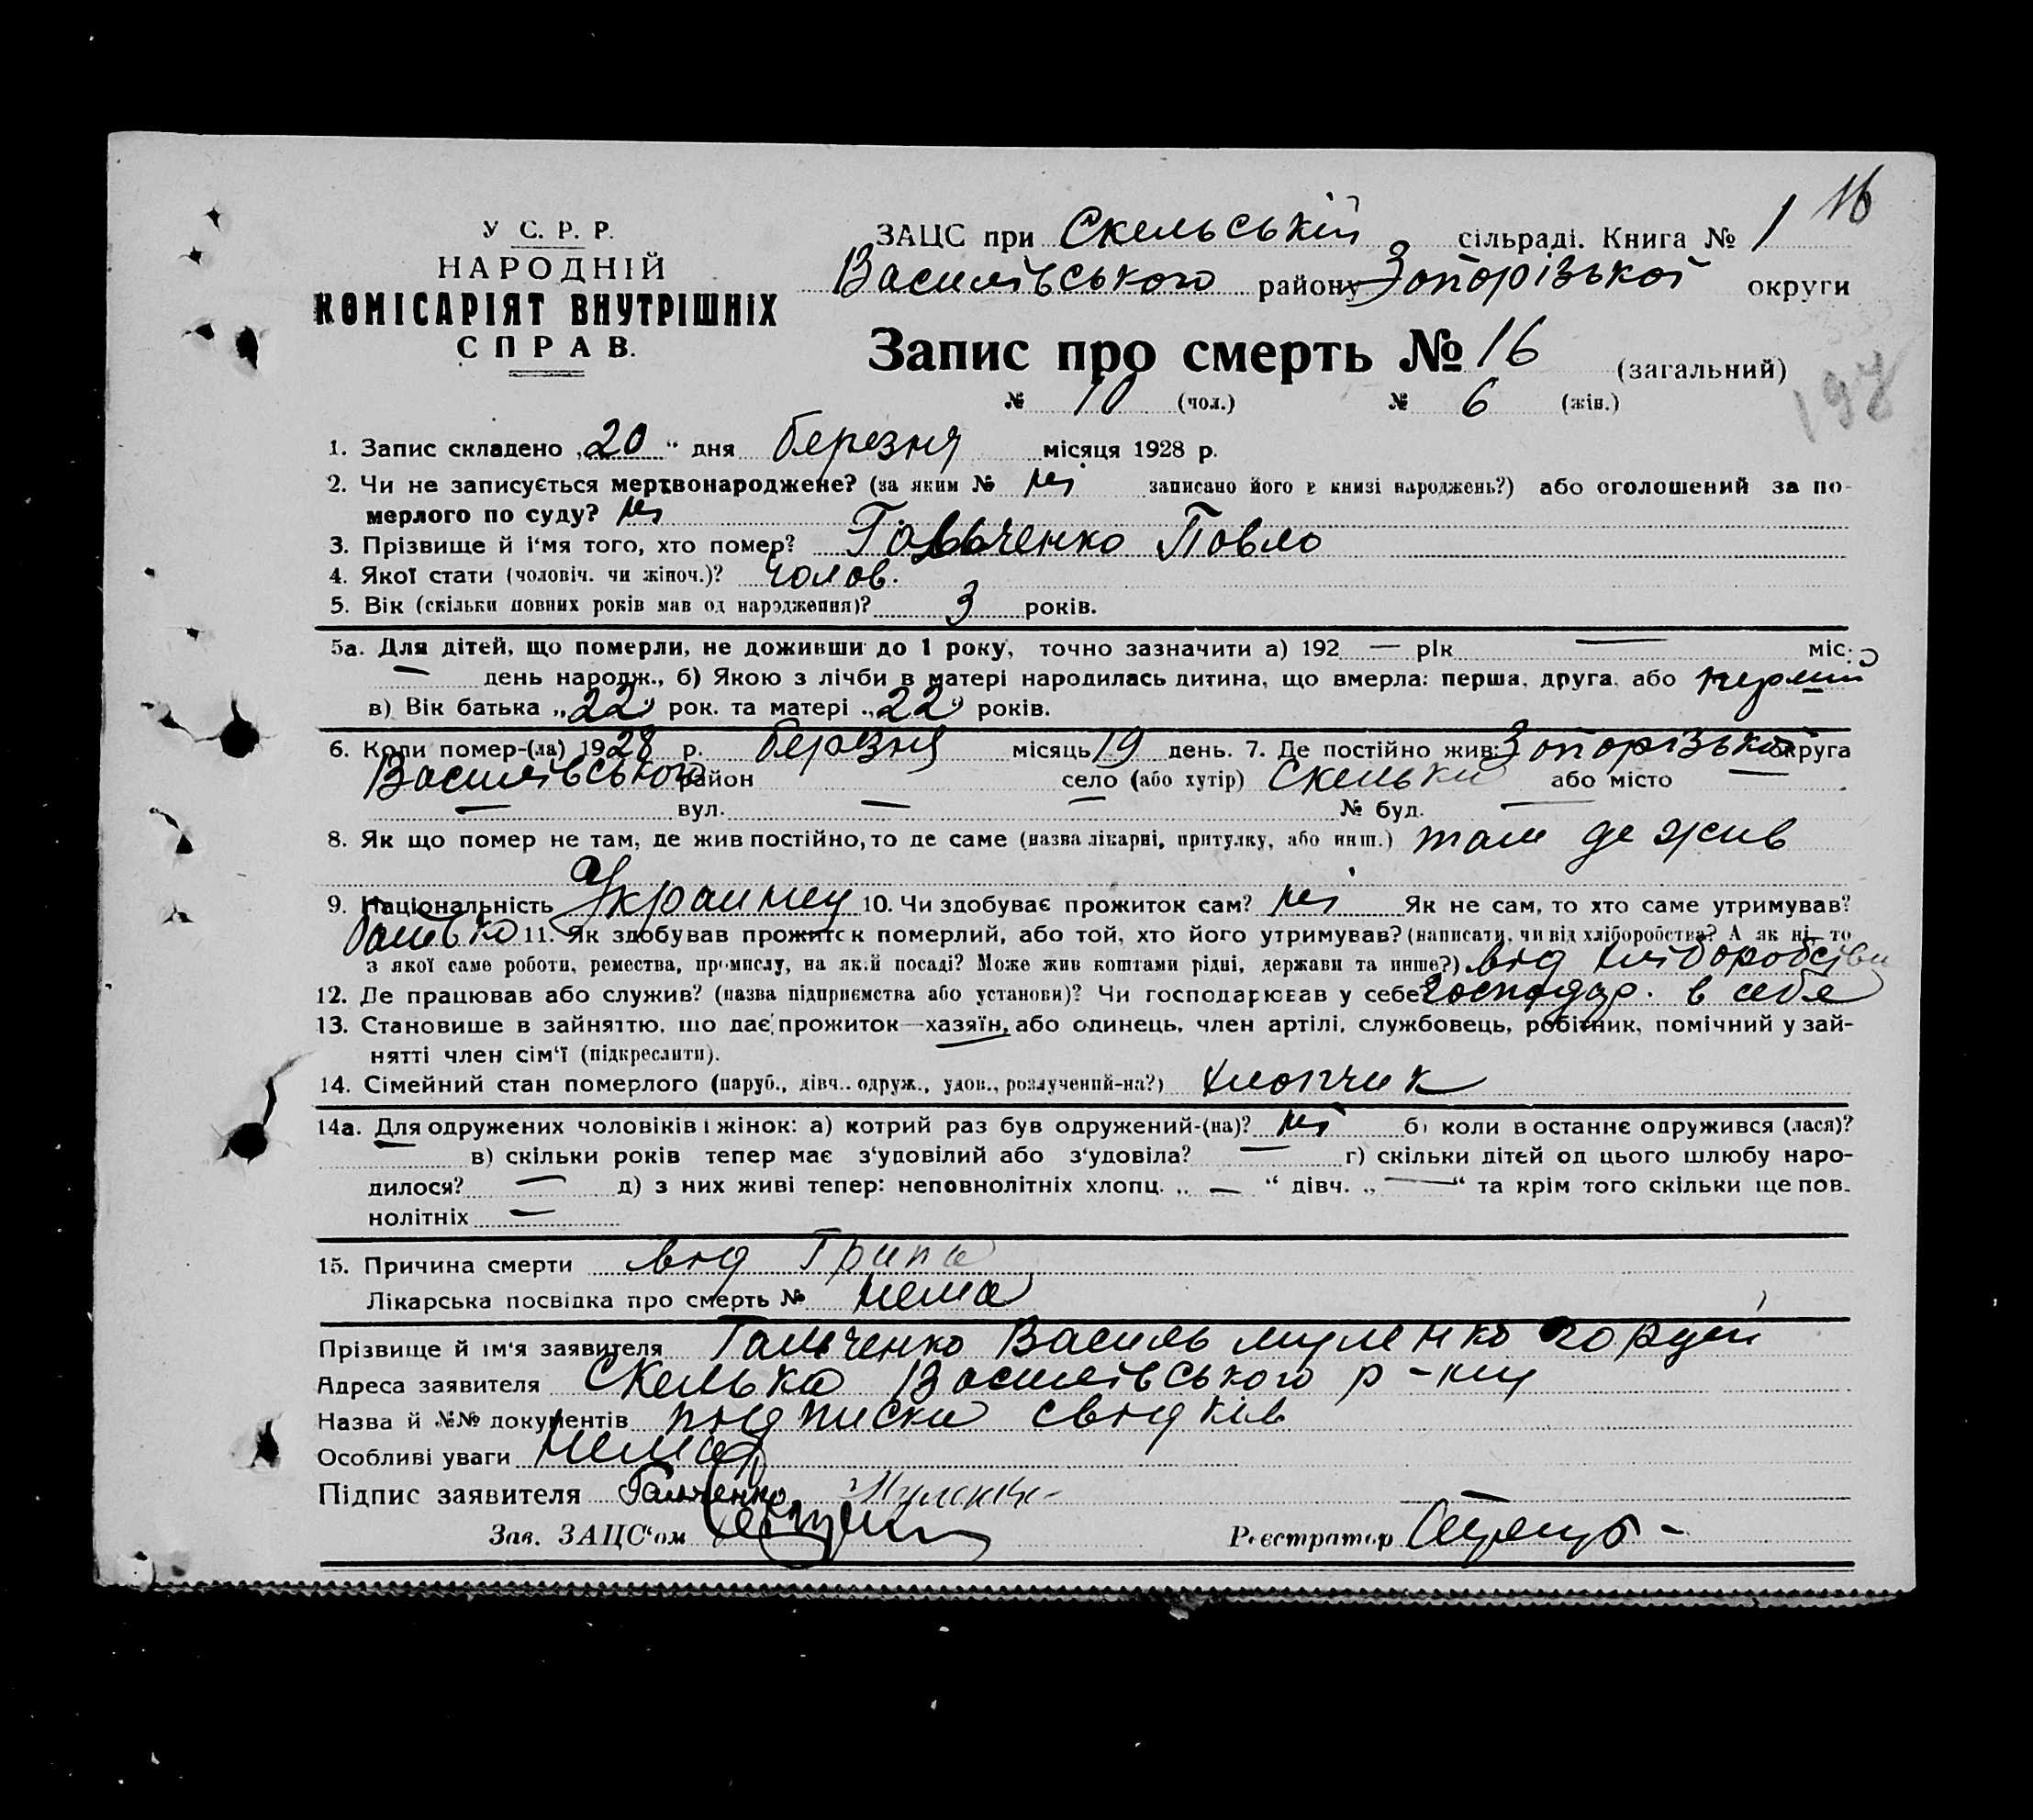 16
У С. Р. Р.
НАРОДНІЙ
КОМІСАРІЯТ ВНУТРІШНІХ
СПРАВ.
ЗАЦС при Скельській сільраді. Книга № 1
Василівського району Запорізької округи
Запис про смерть № 16 (загальний)
№ 10 (чол.) № 6 (жін.)
1. Запис складено „20“ дня березня місяця 1928 р.
2. Чи не записується мертвонароджене? (за яким № ні записано його в книзі народжень?) або оголошений за по-
мерлого по суду? ні
3. Прізвище й і'мя того, хто помер? Павло
4. Якої стати (чоловіч. чи жіноч.)? чолов.
5. Вік (скільки повних років мав од народження)? 3 років.
5а. Для дітей, що померли, не доживши до 1 року, точно зазначити а) 192 — рік — міс.
— день народж., б) Якою з лічби в матері народилась дитина, що вмерла: перша, друга, або
в) Вік батька „22“ рок. та матері „22“ років.
6. Коли помер-(ла) 1928 р. березня місяць 19 день. 7. Де постійно жив: Запорізької округа
Василівського район село (або хутір) Скельки або місто —
— вул. — — № буд. —
8. Як що помер не там, де жив постійно, то де саме (назва лікарні, притулку, або инш.) там де жив
9. Національність Украинец 10. Чи здобуває прожиток сам? ні Як не сам, то хто саме утримував?
батько 11. Як здобував прожиток померлий, або той, хто його утримував? (написати, чи від хліборобства? А як ні, то
з якої саме роботи, ремества, промислу, на якій посаді? Може жив коштами рідні, держави та инше?) від хліборобства
12. Де працював або служив? (назва підприємства або установи)? Чи господарював у себе? господар. в себе
13. Становише в зайнятто, що дає прожиток—хазяїн, або одинець, член артілі, службовець, робітник, помічний у зай-
нятті член сім'ї (підкреслити).
14. Сімейний стан померлого (паруб., дівч.. одруж., удов., розлучений-на?) хлопчик
14а. Для одружених чоловіків і жінок: а) котрий раз був одружений-(на)? ні б) коли в останнє одружився (лася)?
— в) скільки років тепер має з'удовілий або з'удовіла? — г) скільки дітей од цього шлюбу наро-
дилося? — д) з них живі тепер: неповнолітніх хлопц. „ — “ дівч. „ — “ та крім того скільки ще пов-
нолітніх —
15. Причина смерти від Грипа
Лікарська посвідка про смерть № нема
Прізвище й ім'я заявителя Галченко Василь Муленко Гордий
Адреса заявителя Скелька Василівського р-ну
Назва й №№ документів підписки свідків
Особливі уваги нема
Підпис заявителя Галченко Муленко
Зав. ЗАЦС'ом Реєстратор